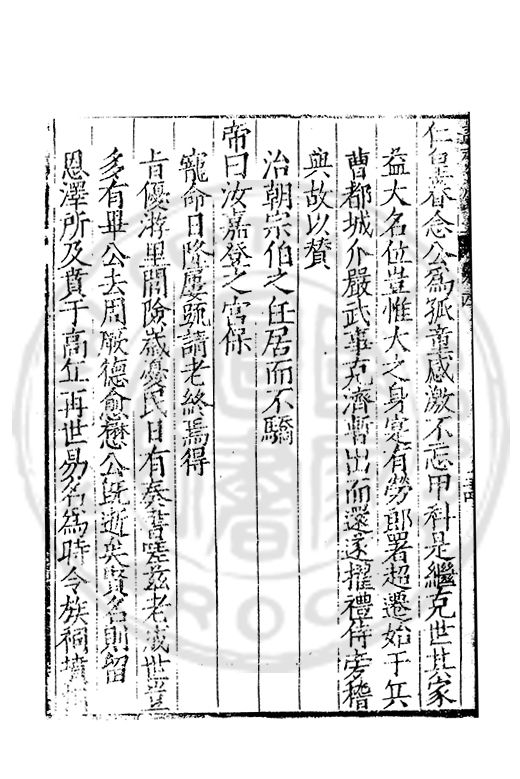 仁皇眷念公為孤童感激不忘甲科是繼克世其家
益大名位豈惟大之身寔有勞郎署超遷始于兵
曹都城介嚴武事克濟暫出而還遂擢禮侍旁稽
典故以贊
治朝宗伯之任居而不驕
帝曰汝嘉登之宮保
寵命日隆屢疏請老終焉得
旨優游里閈險歲憂民日有奏書嗟茲老成世豈
多有畢公去周厥德愈懋公既逝矣賢名則留
恩澤所及賁于高丘再世易名為時令族祠墳